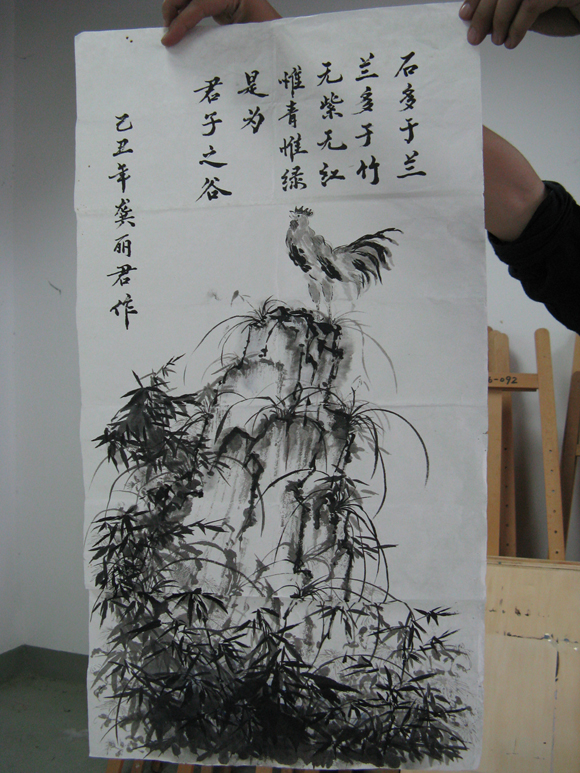 石多于兰
兰多于竹
无紫无红
惟青惟绿
是为
君子之谷
己丑年龚丽君作
-092